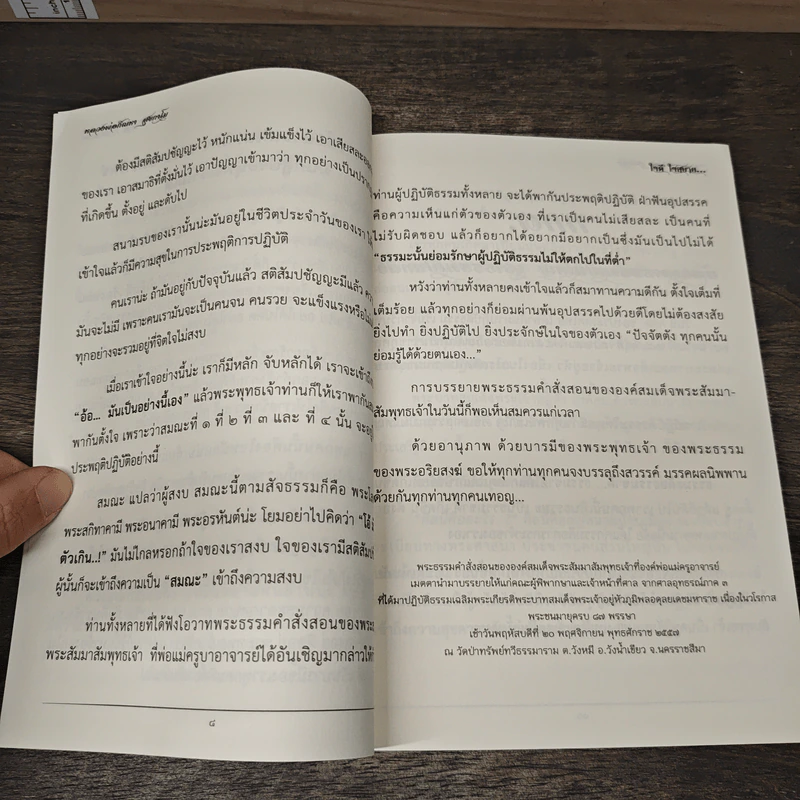 ต้องมีสติสัมปชัญญะไว้ หนักแน่น เข้มแข็งไว้ เอาเสียสละ
ของเรา เอาสมาธิที่ตั้งมั่นไว้ เอาปัญญาเข้ามาว่า ทุกอย่างเป็น
ที่เกิดขึ้น ตั้งอยู่ และดับไป
สนามรบของเรานั้นน่ะมันอยู่ในชีวิตประจำวันของเรา
เข้าใจแล้วก็มีความสุขในการประพฤติการปฏิบัติ
คนเราน่ะ ถ้ามันอยู่กับปัจจุบันแล้ว สติสัมปชัญญะมีแล้ว
มันจะไม่มี เพราะคนเรามันจะเป็นคนจน คนรวย จะแข็งแรงหรือ
ทุกอย่างจะรวมอยู่ที่จิตใจไม่สงบ
เมื่อเราเข้าใจอย่างนี้น่ะ เราก็มีหลัก จับหลักได้ เราจะเข้า
“อ้อ... มันเป็นอย่างนี้เอง” แล้วพระพุทธเจ้าท่านก็ให้เราพากัน
พากันตั้งใจ เพราะว่าสมณะที่ ๑ ที่ ๒ ที่ ๓ และ ที่ ๔ นั้น จะ
ประพฤติปฏิบัติอย่างนี้
สมณะ แปลว่าผู้สงบ สมณะนี้ตามสัจธรรมก็คือ
พระสกิทาคามี พระอนาคามี พระอรหันต์น่ะ โยมอย่าไปคิดว่า “โอ้
ตัวเกิน...!” มันไม่ไกลหรอกถ้าใจของเราสงบ ใจของเรามีสติ
ผู้นั้นก็จะเข้าถึงความเป็น “สมณะ” เข้าถึงความสงบ
ท่านทั้งหลายที่ได้ฟังโอวาทพระธรรมคำสั่งสอนของ
พระสัมมาสัมพุทธเจ้า ที่พ่อแม่ครูบาอาจารย์ได้อันเชิญมากล่าว
๘
ท่านผู้ปฏิบัติธรรมทั้งหลาย จะได้พากันประพฤติปฏิบัติ ฝ่าฟันอุปสรรค
คือความเห็นแก่ตัวของตัวเอง ที่เราเป็นคนไม่เสียสละ เป็นคนที่
ไม่รับผิดชอบ แล้วก็อยากได้อยากมีอยากเป็นซึ่งมันเป็นไปไม่ได้
“ธรรมะนั้นย่อมรักษาผู้ปฏิบัติธรรมไม่ให้ตกไปในที่ต่ำ”
หวังว่าท่านทั้งหลายคงเข้าใจแล้วก็สมาทานความดีกัน ตั้งใจเต็มที่
เต็มร้อย แล้วทุกอย่างก็ย่อมผ่านพ้นอุปสรรคไปด้วยดีโดยไม่ต้องสงสัย
ยิ่งไปทำ ยิ่งปฏิบัติไป ยิ่งประจักษ์ในใจของตัวเอง “ปัจจัตตัง ทุกคนนั้น
ย่อมรู้ได้ด้วยตนเอง...”
การบรรยายพระธรรมคำสั่งสอนขององค์สมเด็จพระสัมมา-
สัมพุทธเจ้าในวันนี้ก็พอเห็นสมควรแก่เวลา
ด้วยอานุภาพ ด้วยบารมีของพระพุทธเจ้า ของพระธรรม
ของพระอริยสงฆ์ ขอให้ทุกท่านทุกคนจงบรรลุถึงสวรรค์ มรรคผลนิพพาน
ด้วยกันทุกท่านทุกคนเทอญ...
พระธรรมคำสั่งสอนขององค์สมเด็จพระสัมมาสัมพุทธเจ้าที่องค์พ่อแม่ครูอาจารย์
เมตตานำมาบรรยายให้แก่คณะผู้พิพากษาและเจ้าหน้าที่ศาล จากศาลอุทธรณ์ภาค ๓
ที่ได้มาปฏิบัติธรรมเฉลิมพระเกียรติพระบาทสมเด็จพระเจ้าอยู่หัวภูมิพลอดุลยเดชมหาราช เนื่องในวโรกาส
พระชนมายุครบ ๘๗ พรรษา
เช้าวันพฤหัสบดีที่ ๒๐ พฤศจิกายน พุทธศักราช ๒๕๕๗
ณ วัดป่าทรัพย์ทวีธรรมาราม ต.วังหมี อ.วังน้ำเขียว จ.นครราชสีมา